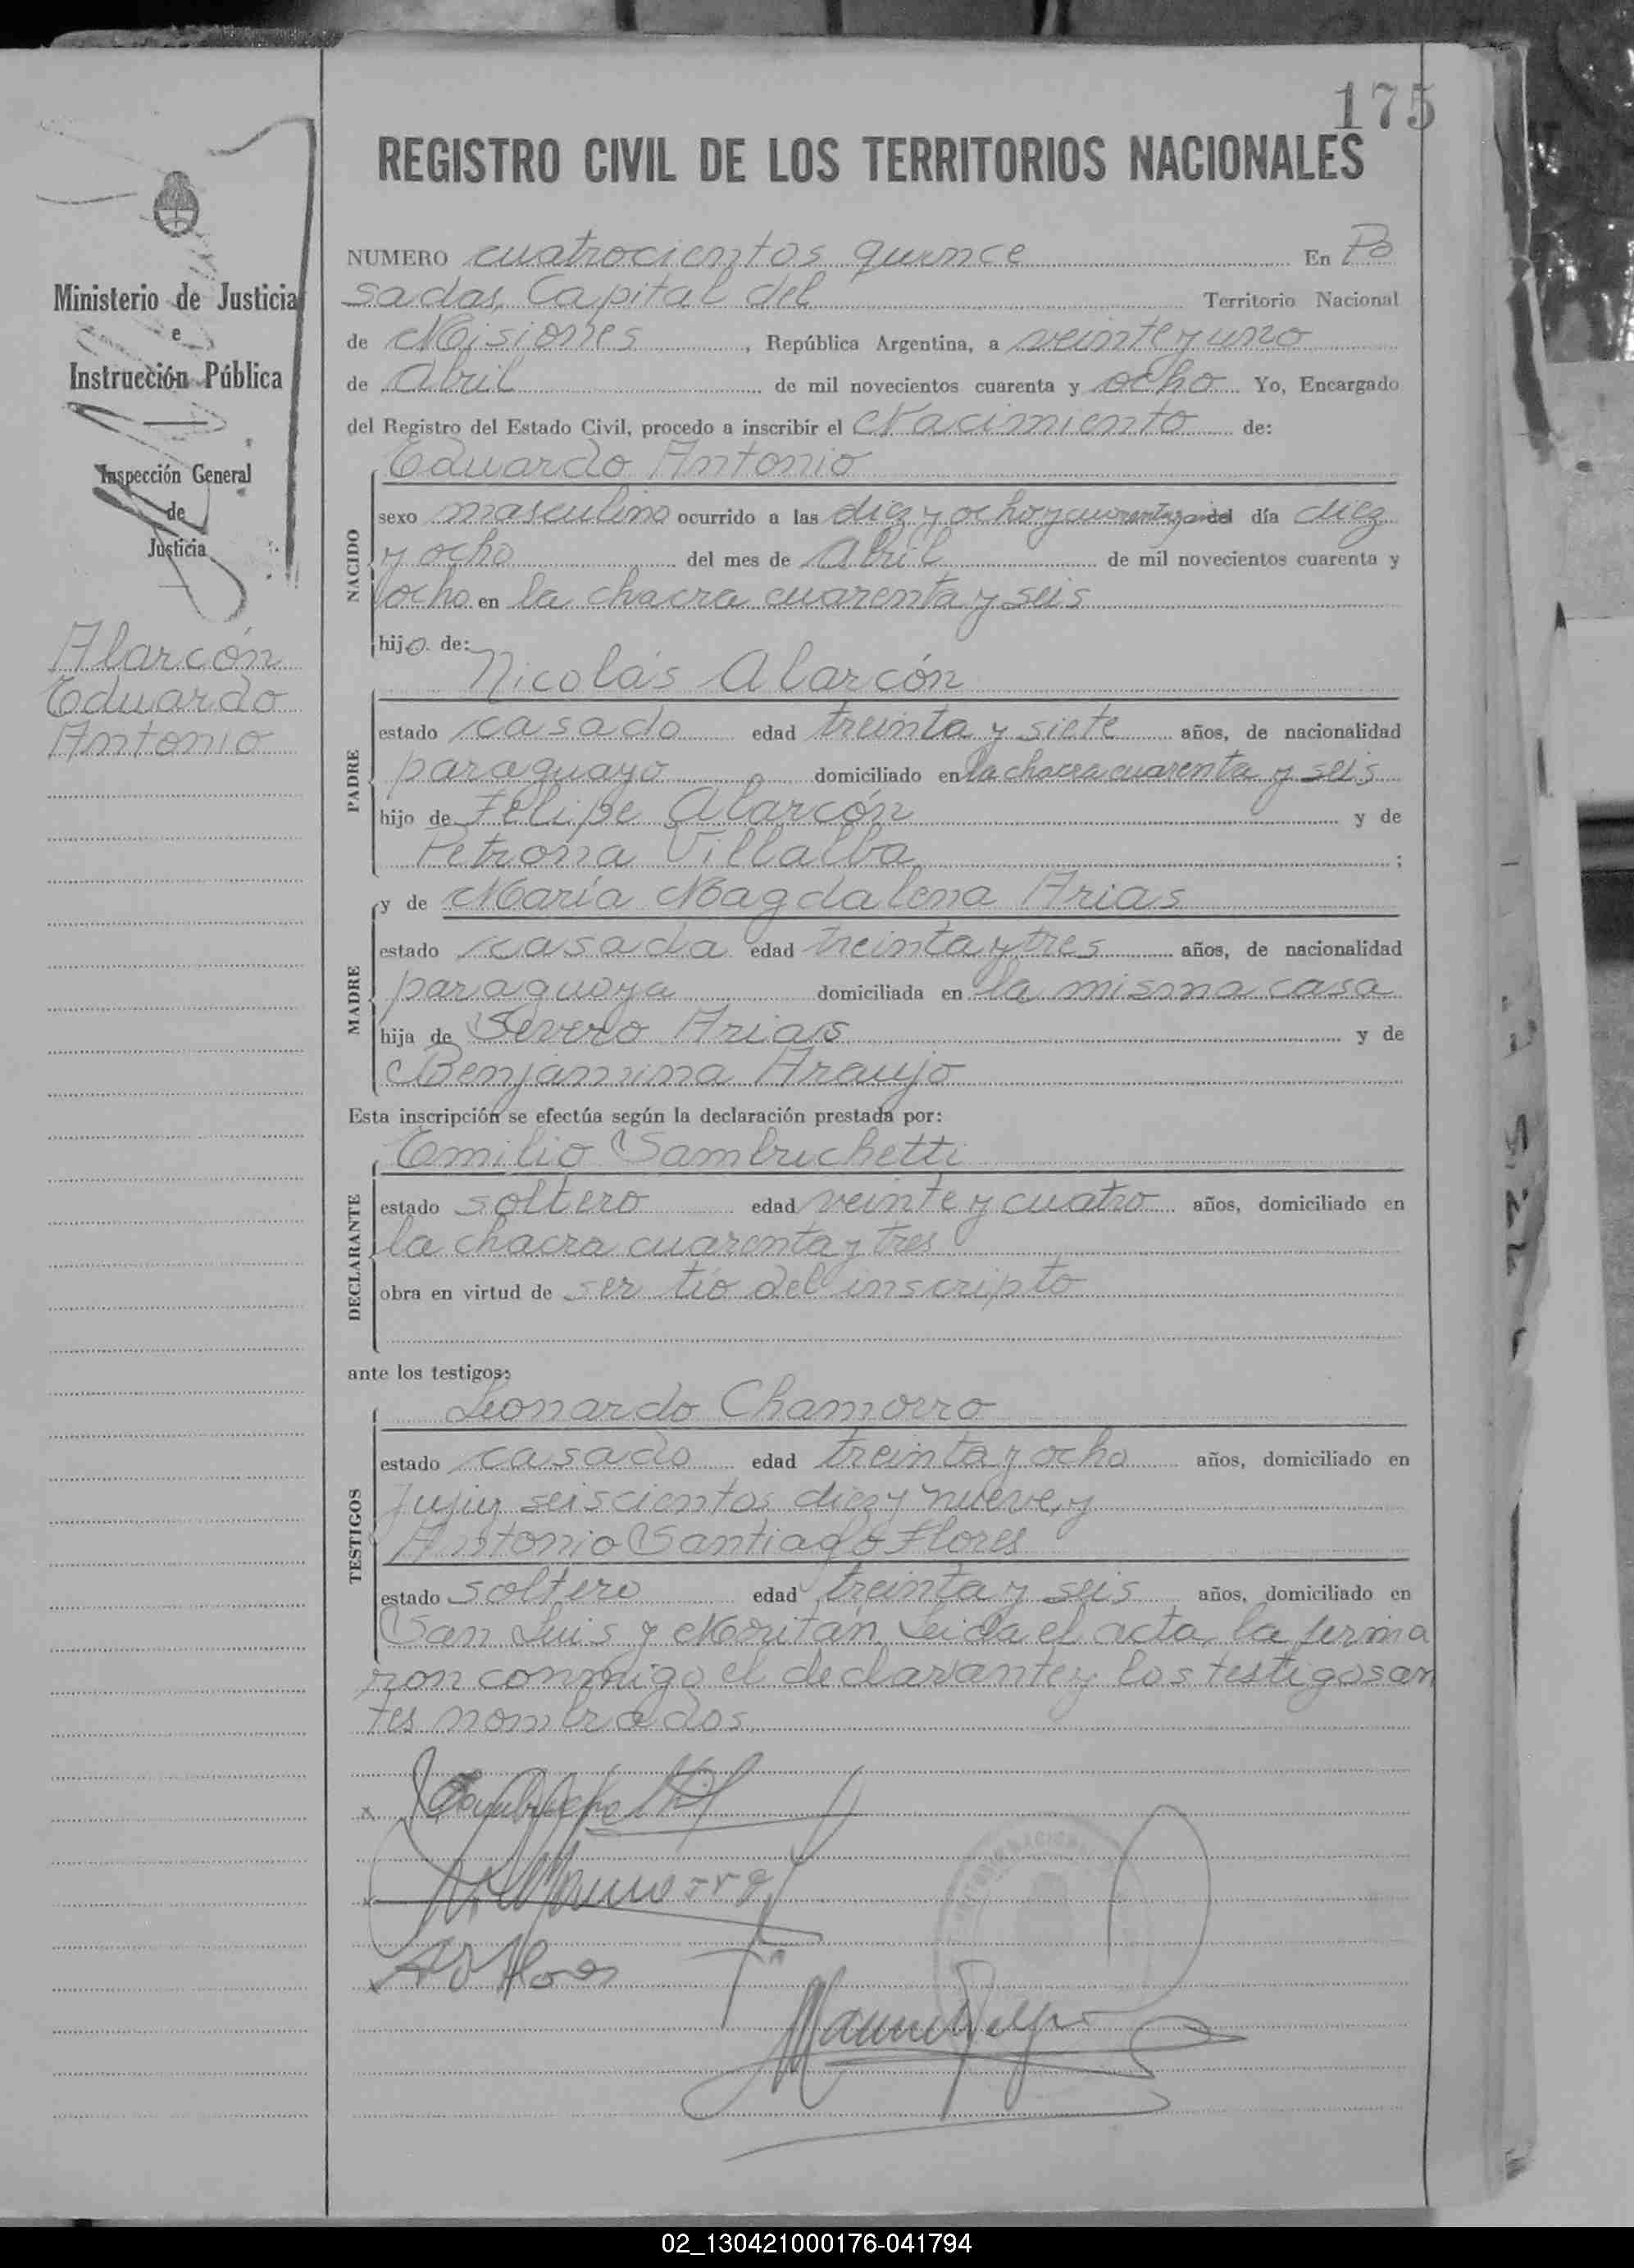 175
REGISTRO CIVIL DE LOS TERRITORIOS NACIONALES
Ministerio de Justicia
e
Instrucción Pública
Inspección General
de
Justicia
Alarcón
Eduardo
Antonio
NUMERO cuatrocientos quince En Po
sadas, Capital del Territorio Nacional
de Misiones, República Argentina, a veinte y uno
de Abril de mil novecientos cuarenta y ocho Yo, Encargado
del Registro del Estado Civil, procedo a inscribir el Nacimiento de:
NACIDO
Eduardo Antonio
sexo masculino ocurrido a las diez y ocho y cuarenta del día diez
y ocho del mes de Abril de mil novecientos cuarenta y
ocho en la chacra cuarenta y seis
hijo de:
PADRE
Nicolás Alarcón
estado casado edad treinta y siete años, de nacionalidad
paraguayo domiciliado en la chacra cuarenta y seis
hijo de Felipe Alarcón y de
Petrona Villalba ;
MADRE
y de María Magdalena Arias
estado casada edad treinta y tres años, de nacionalidad
paraguaya domiciliada en la misma casa
hija de Severo Arias y de
Benjamina Araujo
Esta inscripción se efectúa según la declaración prestada por:
DECLARANTE
Emilio Sambrichetti
estado soltero edad veinte y cuatro años, domiciliado en
la chacra cuarenta y tres
obra en virtud de ser tío del inscripto
ante los testigos:
TESTIGOS
Leonardo Chamorro
estado casado edad treinta y ocho años, domiciliado en
Jujuy seiscientos diez y nueve, y
Antonio Santiago Flores
estado soltero edad treinta y seis años, domiciliado en
San Luis y Moritán. Leída el acta, la firma
ron conmigo el declarante y los testigos an
tes nombrados.
02_130421000176-041794